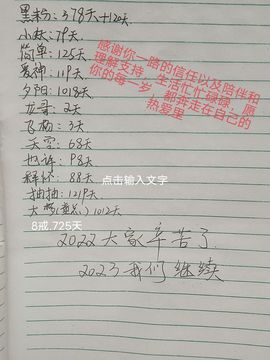 黑粉: 378天+120天.
小赵: 79天
简单: 125天
爱神: 119天
夕阳: 1018天
龙哥: 2天
飞雨: 3天
天空: 68天
也许: 98天
释怀: 88天
抽抽: 1219天.
大梦(萱总) 1012天
8戒.725天
2022大家辛苦了
2023我们继续
感谢你一路的信任以及陪伴和
理解支持，生活忙忙碌碌，愿
你的每一岁，都奔走在自己的
热爱里
点击输入文字